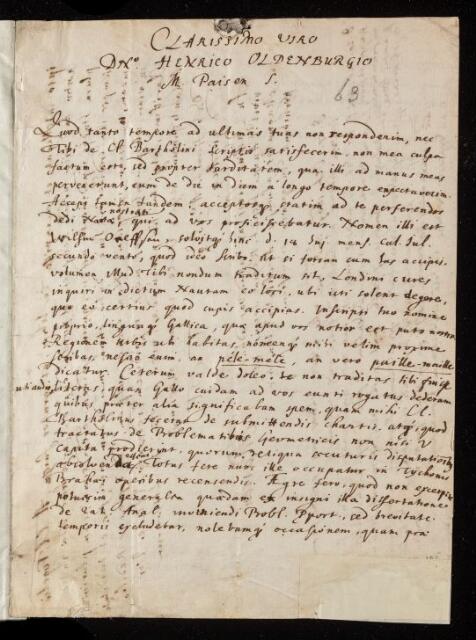 CLARISSIMO VIRO
DN° HENRICO OLDENBURGIO
M. Paisen S.
63
Quod tanto tempore ad ultimas tuas non responderim, nec
Tibi de Cl. Bartholini scriptis satisfecerim, non mea culpa
factum est, sed propter tarditatem, qua illi ad manus meas
pervenerunt, eum de die in diem a longo tempore expectaverim.
Accepi tamen tandem, acceptosq; statim ad te perferendos
dedi Nautæ nostrati, qui ad vos proficiscebatur. Nomen illi est
Wilhm solvitq; hinc d. 14 mens. Jul.
secundo vento, quod ideo scribo ut si forsan cum has accipis
volumen illud Tibi nondum traditum sit, Londini cures
inquiri in dictum Nautam eo loci, ubi isti solent degere,
quo eo certius quod cupis accipias. Inscripsi tuo nomine
proprio, linguaq; Gallica, quæ apud vos notior est puto nostra
Regionem Urbis ubi habitas, nomenq; mihi velim proxime
scribas, nescio enim, an pèle-mèle, an vero paille-maille
dicatur. Ceterum valde doleo, te non traditas tibi fuisse
literas, quas Gallo cuidam ad vos eunti rogatus dederam
quibus præter alia significabam spem, quam mihi Cl.
Bartholinus fecerat de submittendis chartis, atq; quod
tractatus de Problematibus Geometricis non nisi V
capita prodierint, quorum reliqua secuturis disputationibus
absolvenda. Totus fere nunc ille occupatur in Tychonis
Brahei operibus recensendis. Ægre fero, quod non excerpere
potuerim generalem quandam ex insigni illa dissertatione
de Anal. inveniendi Probl. sed brevitate
temporis excludebar, nolebamq; occasionem, quam præ